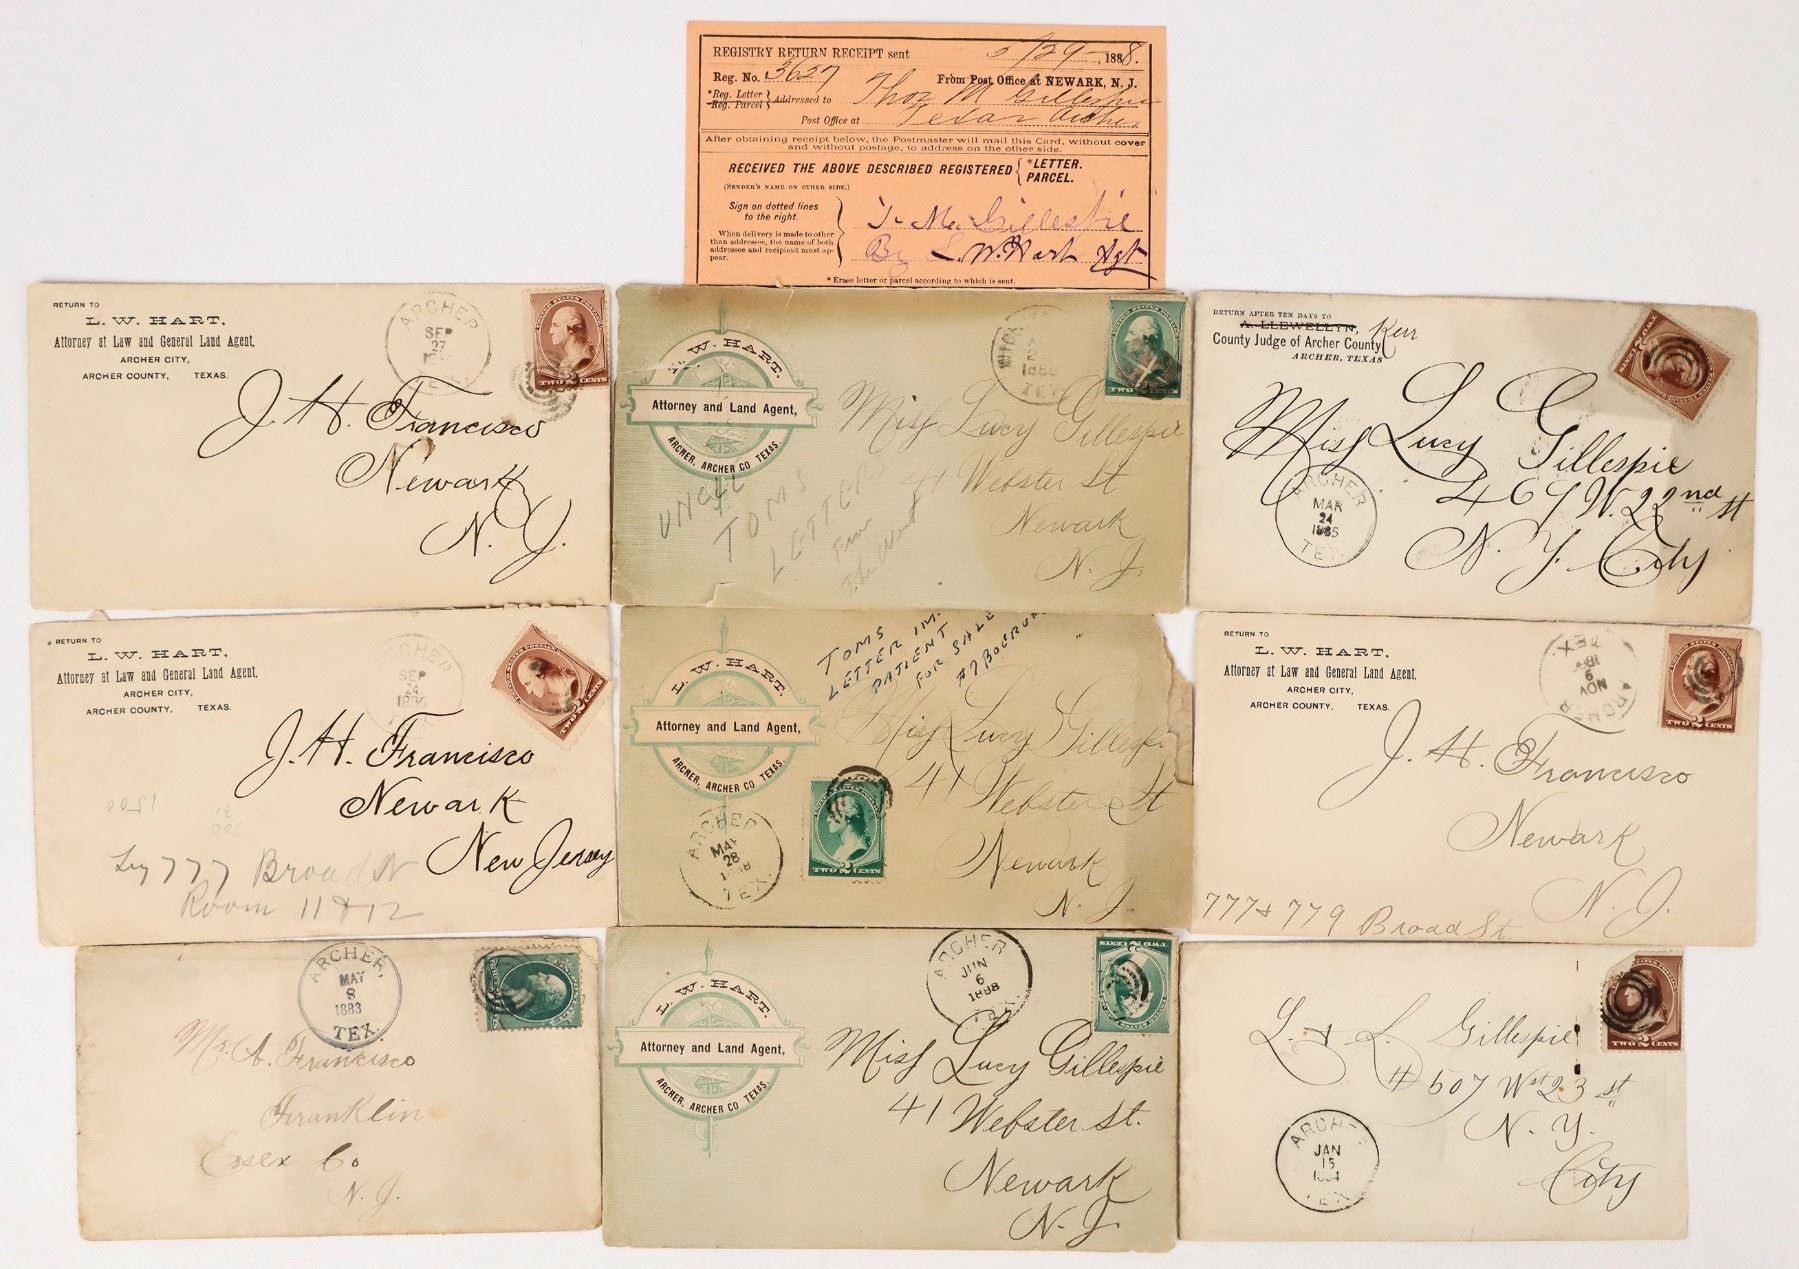 REGISTRY RETURN RECEIPT sent 5/29 1888.
Reg. No. 3627 From Post Office at NEWARK, N. J.
*Reg. Letter
Reg. Parcel } Addressed to Thos M Gillespie
Post Office at Texas Archer
After obtaining receipt below, the Postmaster will mail this Card, without cover
and without postage, to address on the other side.
RECEIVED THE ABOVE DESCRIBED REGISTERED { *LETTER.
PARCEL.
(SENDER'S NAME ON OTHER SIDE.)
Sign on dotted lines
to the right.
When delivery is made to other
than addressee, the name of both
addressee and recipient must ap-
pear.
T. M. Gillespie
By L. W. Hart Agt
* Erase letter or parcel according to which is sent.
RETURN TO
L. W. HART,
Attorney at Law and General Land Agent,
ARCHER CITY,
ARCHER COUNTY, TEXAS.
ARCHER
SEP
27
TEX
TWO 2 CENTS
J. H. Francisco
Newark
N. J.
L. W. HART,
Attorney and Land Agent,
ARCHER, ARCHER CO TEXAS.
TEX
TWO 2 CENTS
Miss Lucy Gillespie
41 Webster St
Newark
N. J.
UNCLE
TOMS
LETTER
From
The West
RETURN AFTER TEN DAYS TO
A. LLEWELLYN, Kerr
County Judge of Archer County
ARCHER, TEXAS
Miss Lucy Gillespie
467 W. 22nd St
N. Y. City
ARCHER
MAR
24
1885
TEX.
* RETURN TO
L. W. HART,
Attorney at Law and General Land Agent,
ARCHER CITY,
ARCHER COUNTY, TEXAS.
ARCHER
SEP
24
1886
TWO 2 CENTS
J. H. Francisco
Newark
New Jersey
1500
700
Try 777 Broad St
Room 11 & 12
TOMS
LETTER IM.
PATIENT
FOR SALE
L. W. HART,
Attorney and Land Agent,
ARCHER, ARCHER CO TEXAS.
ARCHER
MAY
28
1888
TEX.
TWO 2 CENTS
Miss Lucy Gillespie
41 Webster St
Newark
N. J.
RETURN TO
L. W. HART,
Attorney at Law and General Land Agent,
ARCHER CITY,
ARCHER COUNTY, TEXAS.
ARCHER
NOV
9
TEX
TWO 2 CENTS
J. H. Francisco
Newark
N. J.
777 & 779 Broad St.
ARCHER,
MAY
8
1883
TEX.
Mr. A. Francisco
Franklin
Essex Co
N. J.
L. W. HART,
Attorney and Land Agent,
ARCHER, ARCHER CO TEXAS.
ARCHER
JUN
6
1888
TEX.
Miss Lucy Gillespie
41 Webster St.
Newark
N. J.
TWO 2 CENTS
L. & L. Gillespie
# 507 Wst 23 st
N. Y.
City
ARCHER
JAN
15
1884
TEX